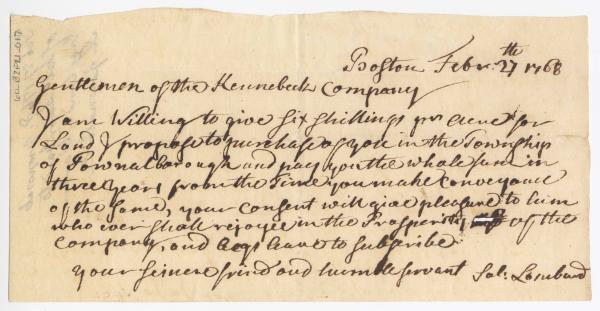 Boston Febr: 27th 1768
Gentlemen of the Kennebeck Company
I am Willing to give six shillings pr acre for
Land I propose to purchase of you in the Township
of Pownalborough and pay you the whole sum in
three years from the Time you make conveyance
of the same, your consent will give pleasure to him
who ever shall rejoyce in the Prosperity of the
Company, and begs leave to subscribe
your sincere frind and humble servant Sol: Lombard